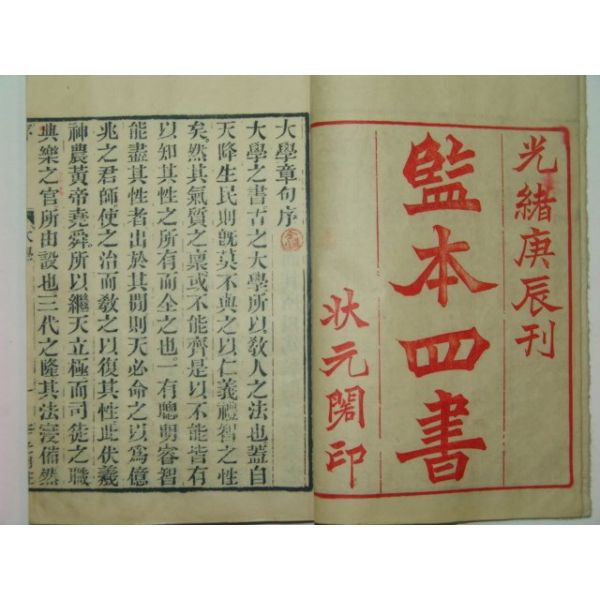 光緒庚辰刊
監本四書
狀元閣印
大學章句序
大學之書古之大學所以教人之法也蓋自
天降生民則既莫不與之以仁義禮智之性
矣然其氣質之稟或不能齊是以不能皆有
以知其性之所有而全之也一有聰明睿智
能盡其性者出於其閒則天必命之以為億
兆之君師使之治而敎之以復其性此伏羲
神農黃帝堯舜所以繼天立極而司徒之職
典樂之官所由設也三代之隆其法寖備然